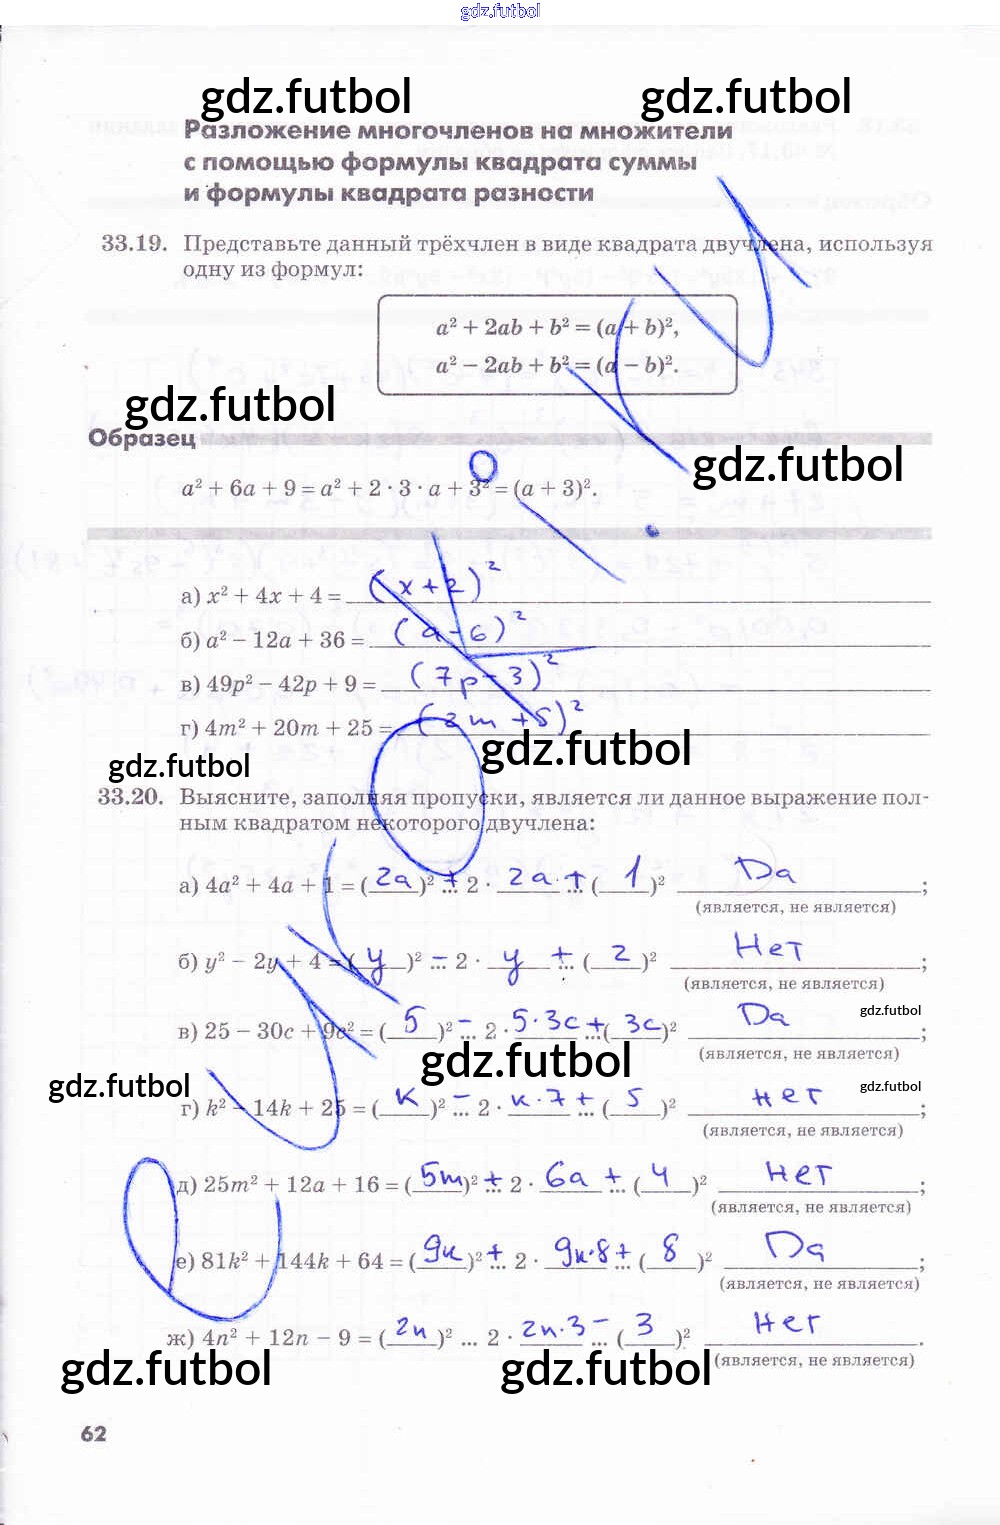 gdz.futbol
gdz.futbol gdz.futbol
Разложение многочленов на множители
с помощью формулы квадрата суммы
и формулы квадрата разности
33.19. Представьте данный трёхчлен в виде квадрата двучлена, используя
одну из формул:
a² + 2ab + b² = (a + b)²,
a² − 2ab + b² = (a − b)².
gdz.futbol
Образец
gdz.futbol
a² + 6a + 9 = a² + 2 · 3 · a + 3² = (a + 3)².
а) x² + 4x + 4 = (x+2)²
б) a² − 12a + 36 = (a-6)²
в) 49p² − 42p + 9 = (7p-3)²
г) 4m² + 20m + 25 = (2m+5)²
gdz.futbol
gdz.futbol
33.20. Выясните, заполняя пропуски, является ли данное выражение пол-
ным квадратом некоторого двучлена:
а) 4a² + 4a + 1 = (2a)² + ... 2 · 2a + ... (1)² Da;
(является, не является)
б) y² − 2y + 4 = (y)² − ... 2 · y + ... (2)² Нет;
(является, не является)
в) 25 − 30c + 9c² = (5)² − ... 2 · 5·3c + ...(3c)² Da;
gdz.futbol
(является, не является)
gdz.futbol
gdz.futbol
gdz.futbol
г) k² − 14k + 25 = (к)² − ... 2 · к·7 + ... (5)² нет;
(является, не является)
д) 25m² + 12a + 16 = (5m)² + ... 2 · 6a + ... (4)² нет;
(является, не является)
е) 81k² + 144k + 64 = (9к)² + ... 2 · 9к·8 + ... (8)² Da;
(является, не является)
ж) 4n² + 12n − 9 = (2n)² ... 2 · 2n·3 − ... (3)² Нет.
(является, не является)
gdz.futbol gdz.futbol
62